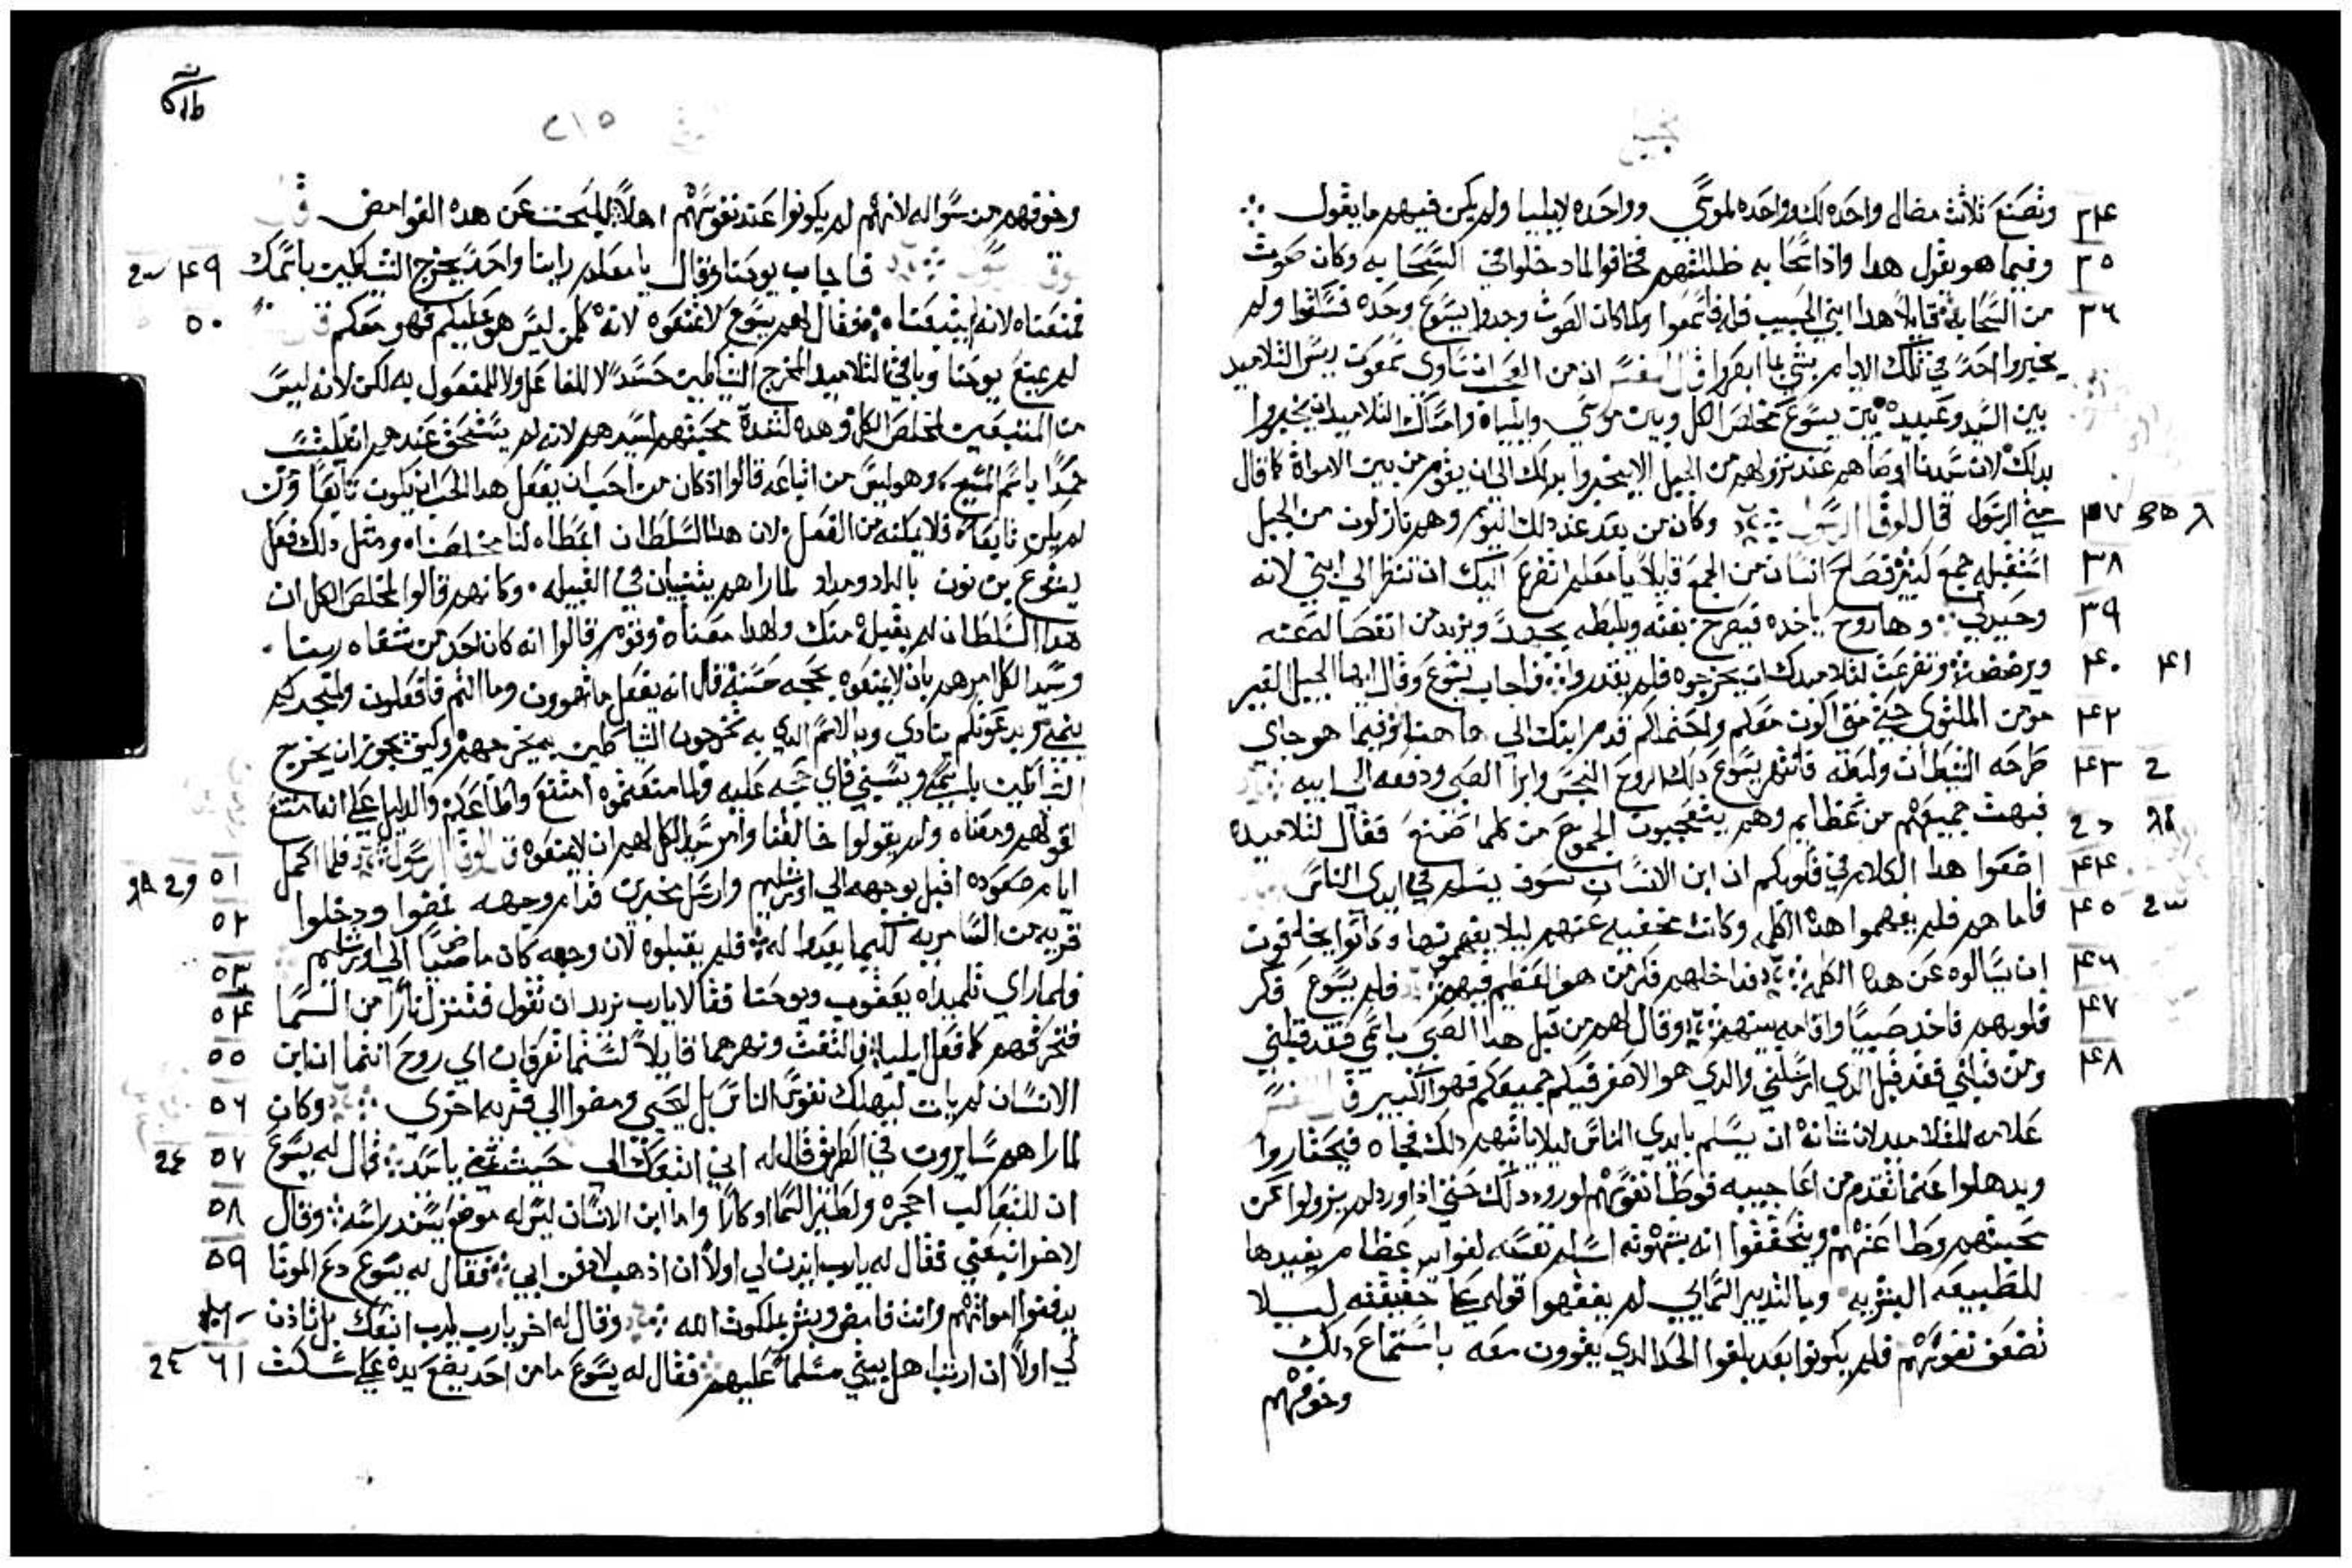 ٣٤ وتصنع ثلاث مضال واحده لك وواحده لموسي وواحده لايليا ولم يكن فيهم ما يقول
٣٥ وفيما هو يقول هدا واذا سحابه ظللتهم فخافوا لما دخلوا في السحابه وكان صوت
٣٦ من السحابه قايلاً هدا ابني الحبيب فله فاسمعوا ولما كان الصوت وجدوا يسوع وحده فسكتوا ولم
يخبروا احداً في تلك الايام بشي مما ابصروا قال المفسر ان من
بين السيد وعبيده بين يسوع مخلص الكل وبين موسي وايلياه وامساك التلاميد ان يخبروا
بداك لان سيدنا اوصاهم عند نزولهم من الجبل الا يخبروا بدلك الي ان يقوم من بين الاموات كما قال
٣٧ متي الرسول قال لوقا الرسول وكان من بعد عند دلك اليوم وهم نازلون من الجبل
٣٨ استقبله جمع كثير فصاح انسان من الجمع قايلاً يا معلم اتضرع اليك ان تنظر الي ابني لانه
٣٩ وحيدلي وها روح ياخده فيصرخ بغته ويلبطه بجهد ويزبد من انفصاله عنه
٤٠ ٤١ ويرضضه وتضرعت لتلاميدك ان يخرجوه فلم يقدروا فاجاب يسوع وقال ايها الجيل الغير
٤٢ مومن الملتوي حتي متي اكون معكم واحتملكم قدم ابنك الي ها هنا وفيما هو جاي
٤٣ طرحه الشيطان ولبطه فانتهر يسوع دلك الروح النجس وابرا الصبي ودفعه الي ابيه
فبهت جميعهم من عظايم وهم يتعجبون الجموع من كلما صنع فقال لتلاميده
٤٤ اضعوا هدا الكلام في قلوبكم ان ابن الانسان سوف يسلم في ايدي الناس
٤٥ فاما هم فلم يفهموا هده الكلمه وكانت مخفيه عنهم ليلا يفهمونها وكانوا يخافون
٤٦ ان يسالوه عن هده الكلمه فداخلهم فكر من هو العظيم فيهم فلم يسوع فكر
٤٧ قلوبهم فاخد صبياً واقامه بينهم وقال لهم من قبل هدا الصبي باسمي فقد قبلني
٤٨ ومن قبلني فقد قبل الدي ارسلني والدي هو الاصغر فيكم جميعكم فهو الكبير
علامه للتلاميد لان شانه ان يسلم بايدي الناس ليلا ياتيهم دلك فجاه فيحتاروا
ويدهلوا عما تقدم من اعاجيبه فوطا نفوسهم لورود دلك حتي ادا ورد لم يزولوا عن
محبتهم وطا عنهم ويتحققوا انه بشهوته اسلم نفسه لفوايد عظام يفيدها
للطبيعه البشريه وبالتدبير السمايي لم يفقهوا قوله علي حقيقته ليلا
تضعف نفوسهم فلم يكونوا بعد بلغوا الحد الدي يقوون معه باستماع دلك
وخوفهم
٢١٥
وخوفهم من سواله لانهم لم يكونوا عند نفوسهم اهلاً للبحث عن هده الغوامض
٤٩ فاجاب يوحنا وقال يا معلم راينا واحداً يخرج الشياطين باسمك
٥٠ فمنعناه لانه لم يتبعنا فقال لهم يسوع لا تمنعوه لانه كلمن ليس هو عليكم فهو معكم
لم يمنع يوحنا وباقي التلاميد المخرج الشياطين حسداً لا للفاعل ولا للمفعول به لكن لانه ليس
من المتبعين لمخلص الكل وهده لشدة محبتهم لسيدهم لانه لم يستحق عندهم
باسم المسيح وهو ليس من اتباعه قالوا اذ كان من احب ان يفعل هدا الحب ان يكون تابعاً ومن
لم يكن تابعاً فلا يمكنه من الفعل لان هدا السلطان اعطاه لنا مخلصنا ومثل دلك فعل
يشوع بن نون بالداد وميداد لما راهم يتنبيان في القبيله وكانهم قالوا لمخلص الكل ان
هدا السلطان لم يقبله منك ولهدا منعناه وقوم قالوا انه كان احد من شفاه ربنا
وسيد الكل امرهم بان لا يمنعوه بحجه حسنه قال انه يفعل ما تهوون وما انتم فاعلون
وبدعوتكم ينادي وبالاسم الدي به تخرجون الشياطين به يخرجهم وكيف يجوز ان يخرج
الشياطين باسمي ويسبني فاي حجه عليه ولما منعتموه امتنع واطاعكم والدليل علي انه امتنع
لقولهم ومنعناه ولم يقولوا خالفنا وامر سيد الكل لهم ان لا يمنعوه قال لوقا الرسول فلما اكمل
٥١ ايام صعوده اقبل بوجهه الي اورشليم وارسل مخبرين قدام وجهه فمضوا ودخلوا
٥٢ قريه من السامريه لكيما يعدوا له فلم يقبلوه لان وجهه كان ماضياً الي اورشليم
٥٣ ٥٤ فلما راي تلميداه يعقوب ويوحنا فقالا يا رب تريد ان نقول فتنزل ناراً من السما
٥٥ فتحرقهم كما فعل ايليا فالتفت ونهرهما قايلاً لستما تعرفان اي روح انتما ان ابن
٥٦ الانسان لم يات ليهلك نفوس الناس بل ليحيي ومضوا الي قريه اخري وكان
٥٧ لما راهم سايرون في الطريق قال له اني اتبعك الي حيث تمضي يا سيد فقال له يسوع
٥٨ ان للثعالب احجره ولطير السما اوكاراً واما ابن الانسان ليس له موضع يسند راسه وقال
٥٩ لاخر اتبعني فقال له يارب ايدن لي اولاً ان اذهب لادفن ابي فقال له يسوع دع الموتا
يدفنوا امواتهم وانت فامض وبشر بملكوت الله وقال له اخر يارب اتبعك بل تاذن
٦١ لي اولاً ان ارتب اهل بيتي مسلماً عليهم فقال له يسوع ما من احد يضع يده علي سكت